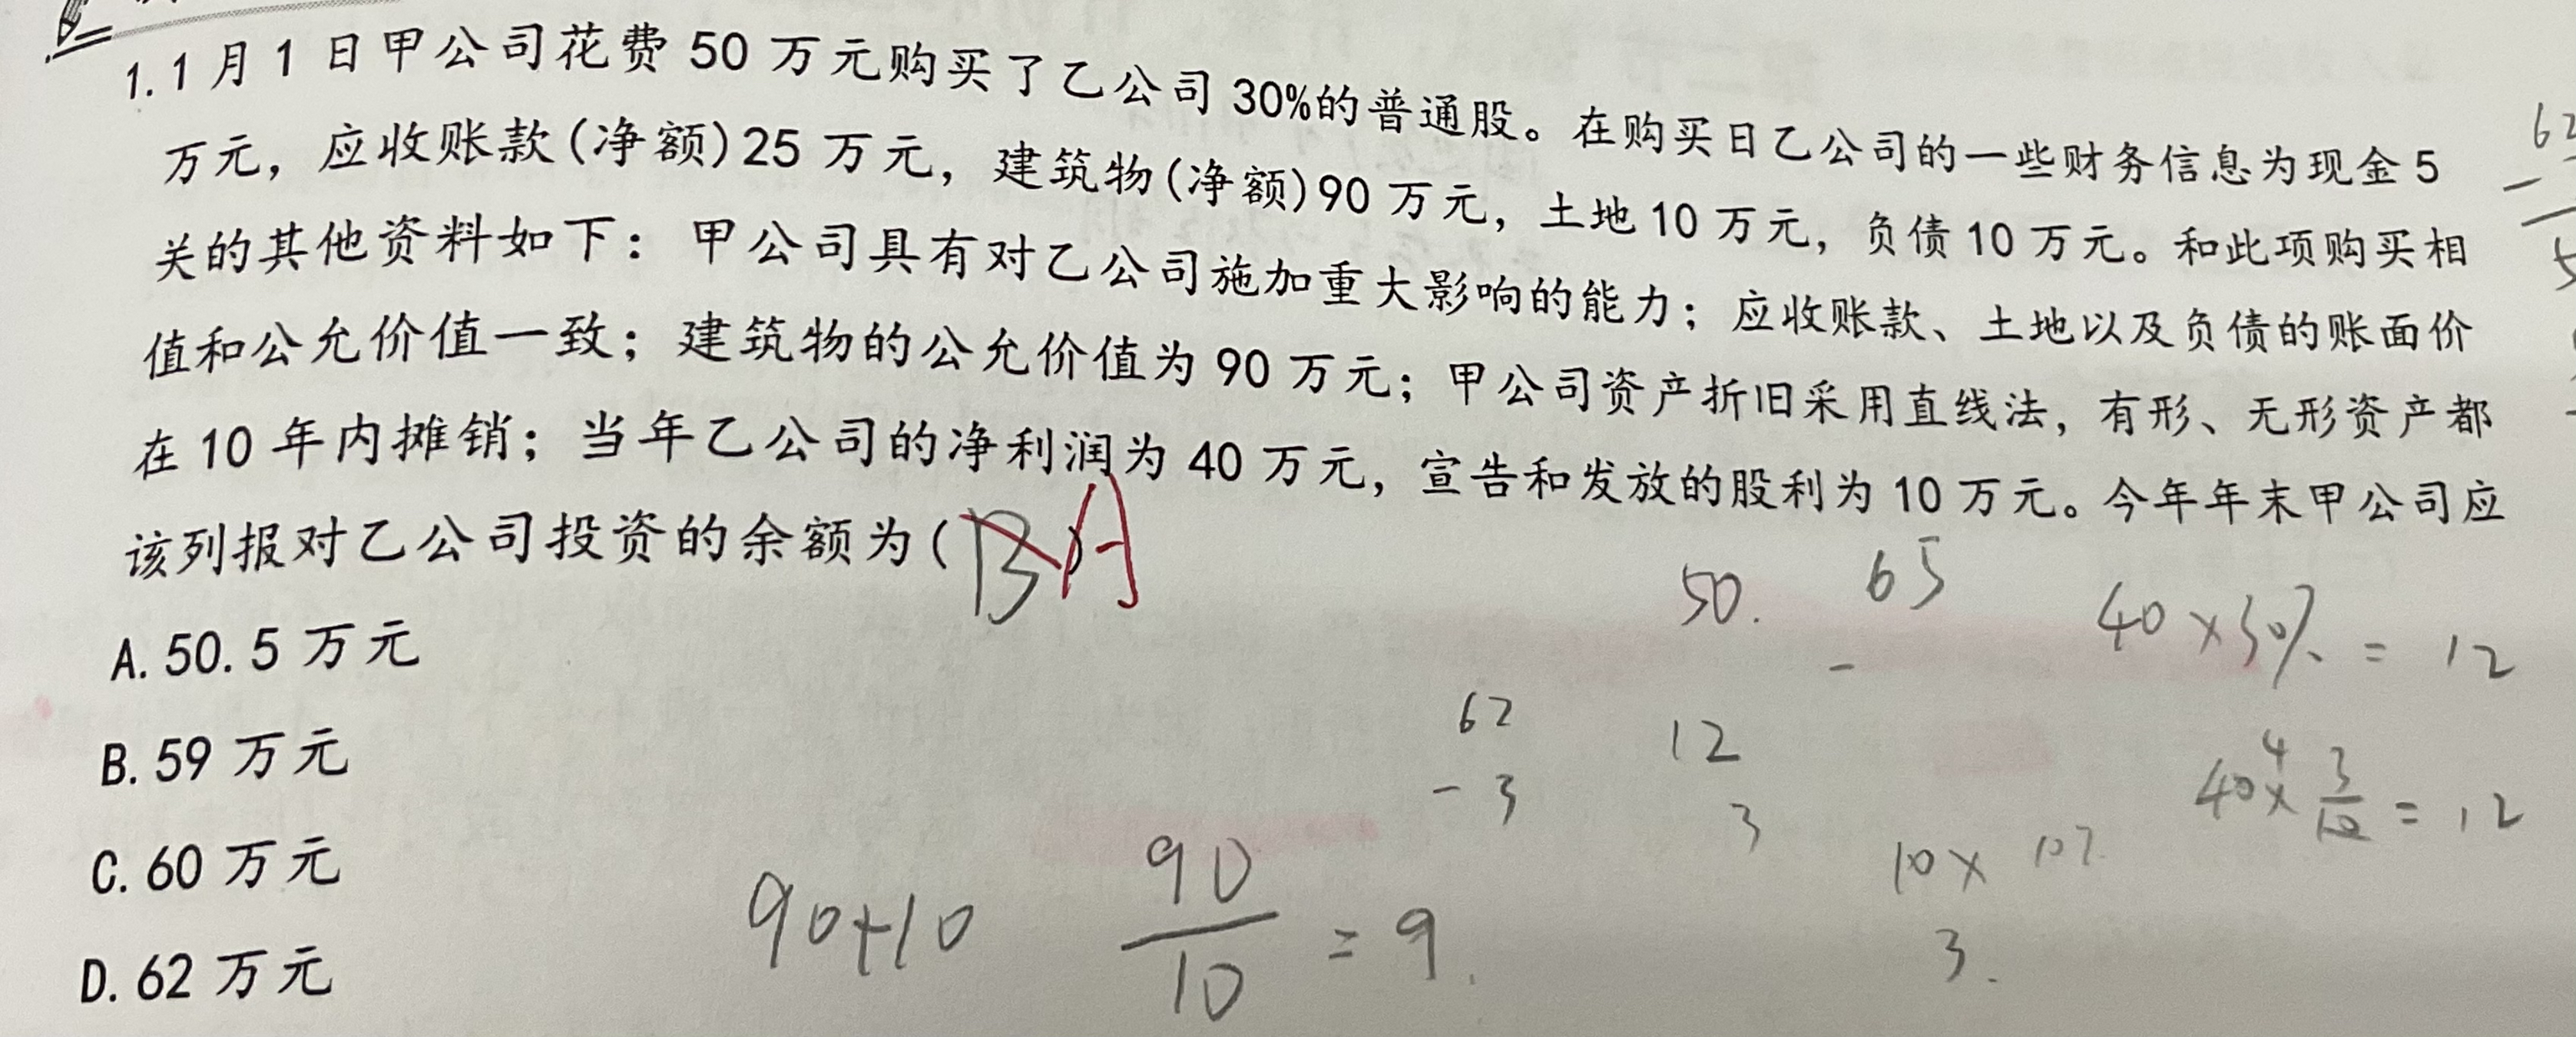 1. 1月1日甲公司花费50万元购买了乙公司30%的普通股。在购买日乙公司的一些财务信息为现金5
万元，应收账款(净额)25万元，建筑物(净额)90万元，土地10万元，负债10万元。和此项购买相
关的其他资料如下：甲公司具有对乙公司施加重大影响的能力；应收账款、土地以及负债的账面价
值和公允价值一致；建筑物的公允价值为90万元；甲公司资产折旧采用直线法，有形、无形资产都
在10年内摊销；当年乙公司的净利润为40万元，宣告和发放的股利为10万元。今年年末甲公司应
该列报对乙公司投资的余额为(B)A
A. 50.5万元
B. 59万元
C. 60万元
D. 62万元
50. 65
-
40×30%=12
62
-3
12
3
40×3/10=12
4
10×10%
3.
90+10
90/10=9.
62
-